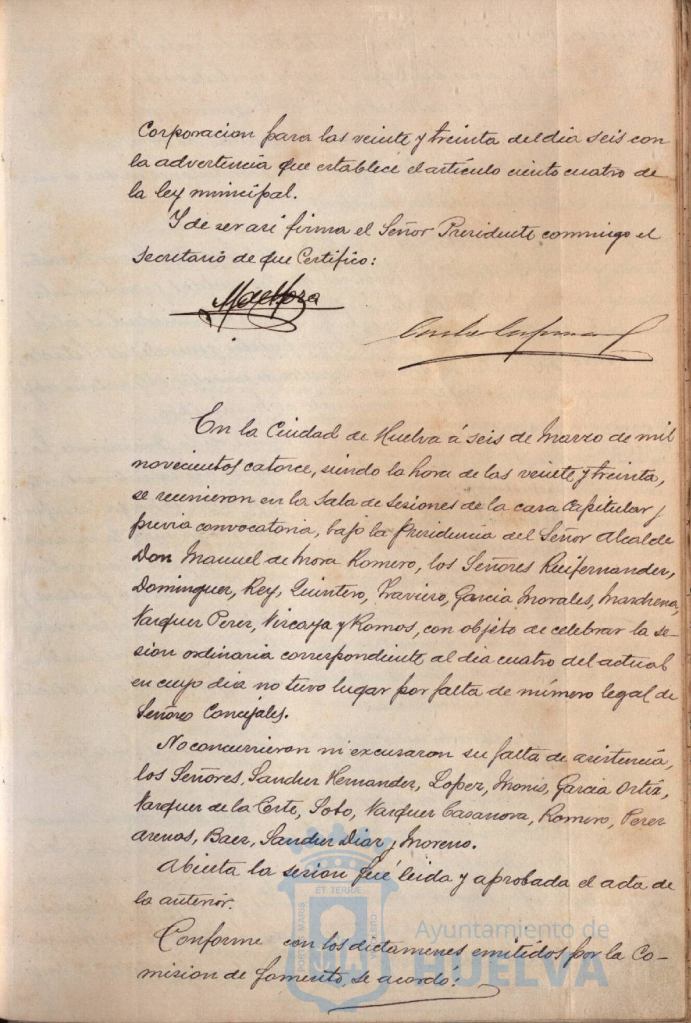 Corporacion para las veinte y treinta del dia seis con
la advertencia que establece el artículo ciento cuatro de
la ley municipal.
Y de ser asi firma el Señor Presidente conmigo el
Secretario de que Certifico:
En la Ciudad de Huelva á seis de Marzo de mil
novecientos catorce, siendo la hora de las veinte y treinta,
se reunieron en la Sala de Sesiones de la casa Capitular y
previa convocatoria, bajo la Presidencia del Señor Alcalde
Don Manuel de Mora Romero, los Señores Ruifernandez,
Dominguez, Rey, Quintero, Traviero, Garcia Morales, Marchena,
Vazquez Perez, Vizcaya y Ramos, con objeto de celebrar la se-
sion ordinaria correspondiente al dia cuatro del actual
en cuyo dia no tuvo lugar por falta de número legal de
Señores Concejales.
No concurrieron ni excusaron su falta de asistencia,
los Señores, Sanchez Hernandez, Lopez, Monis, Garcia Ortiz,
Vazquez de la Corte, Soto, Vazquez Casanova, Romero, Perez
Arenas, Baez, Sanchez Diaz y Moreno.
Abierta la sesion fué leida y aprobada el acta de
la anterior.
Conforme con los dictamenes emitidos por la Co-
mision de fomento, se acordó:
Ayuntamiento de
HUELVA